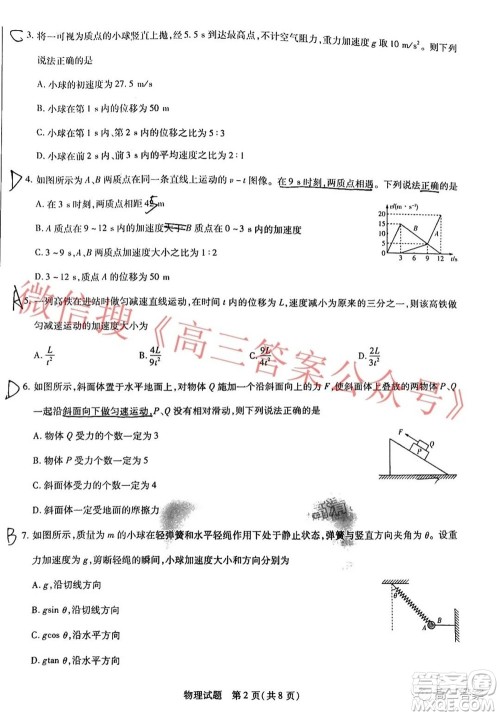 C 3. 将一可视为质点的小球竖直上抛,经5.5 s到达最高点,不计空气阻力,重力加速度 g 取10 m/s²。则下列
说法正确的是
A. 小球的初速度为 27.5 m/s
B. 小球在第 1 s 内的位移为 50 m
C. 小球在第二个 1 s 内与第四个 1 s 内的位移之比为 2∶1
D. 小球在前 1 s 内与前 3 s 内的平均速度之比为 2∶1
D 4. 如图所示为 A、B 两质点在同一条直线上运动的 v-t 图像。在 9 s 时刻,两质点相遇。下列说法正确的是
A. 在 3 s 时刻,两质点相距 45 m
B. A 质点在 9~12 s 内的加速度大于 B 质点在 0~3 s 内的加速度
C. 3~9 s 内,A、B 质点的位移之比为 1∶2
D. 3~12 s 内,质点 A 的位移为 50 m
v/(m·s⁻¹)
20
15
10
5
0 3 6 9 12 t/s
B A
A 5. 一列高铁在进站时做匀减速直线运动,在时间 t 内的位移为 L,速度减小为原来的三分之一,则该高铁做
匀减速运动的加速度大小为
A. L/t² B. 4L/9t² C. 9L/4t² D. 4L/3t²
D 6. 如图所示,斜面体置于水平地面上,物块 Q 受到一沿斜面向上的拉力,使斜面体上叠放的两物体 P、Q
一起沿斜面向下做匀速运动,则下列说法正确的是
A. 物体 Q 受力的个数一定为 3
B. 物体 P 受力的个数一定为 5
C. 斜面体受力的个数一定为 5
D. 斜面体一定受地面的摩擦力
F Q P
B 7. 如图所示,质量为 m 的小球在轻弹簧和水平轻绳作用下处于静止状态,弹簧与竖直方向夹角为 θ。设重
力加速度为 g,剪断轻绳的瞬间,小球加速度大小和方向分别为
A. g,沿切线方向
B. gsin θ,沿切线方向
C. gcos θ,沿水平方向
D. gtan θ,沿水平方向
θ
A B
微信搜《高三答案公众号》
物理试题 第 2 页(共 8 页)
高三答案
MXQE.COM